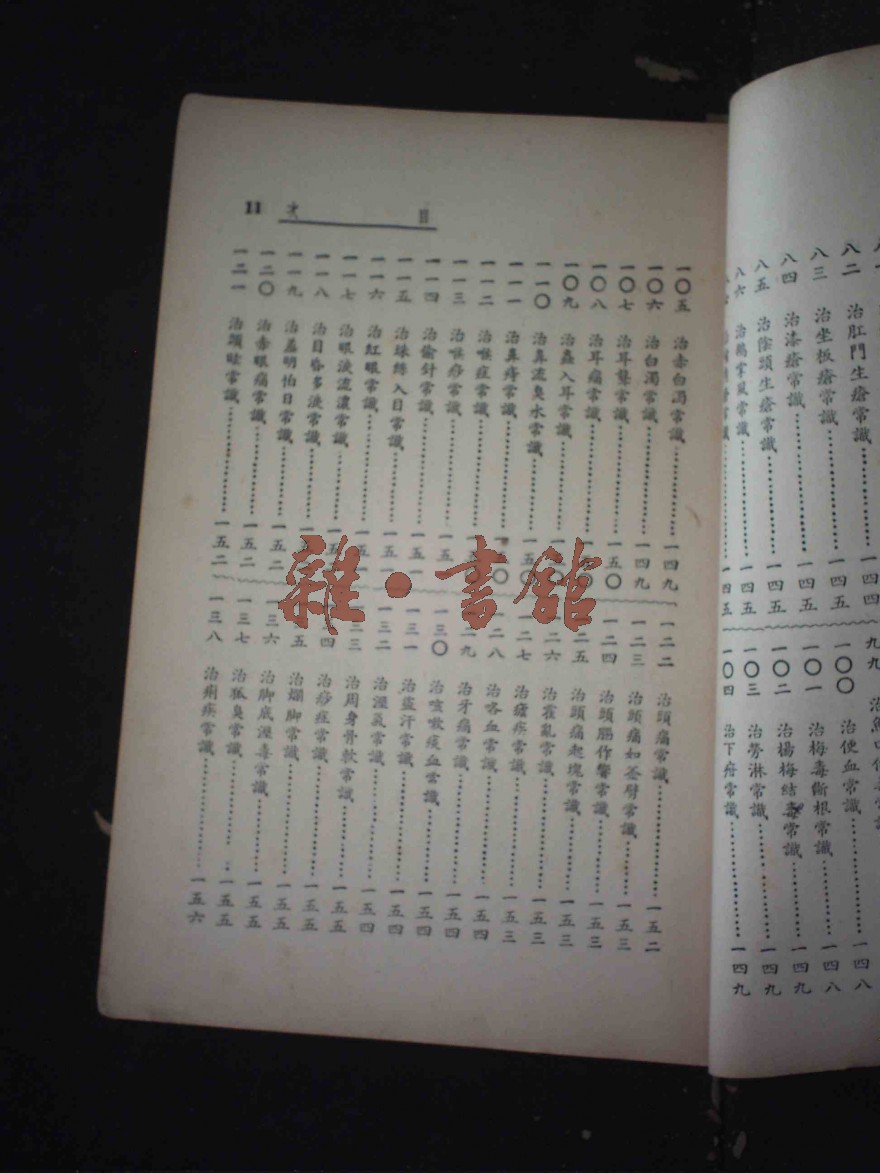 目次
11
一〇五 治赤白濁常識 一四九
一〇六 治白濁常識 一四九
一〇七 治耳聾常識 一五〇
一〇八 治耳痛常識
一〇九 治蟲入耳常識
一一〇 治鼻流臭水常識
一一一 治鼻痔常識
一一二 治喉症常識
一一三 治喉痧常識
一一四 治偷針常識
一一五 治珠絲入目常識
一一六 治紅眼常識
一一七 治眼淚流濃常識
一一八 治目昏多淚常識
一一九 治羞明怕日常識 一五二
一二〇 治赤眼痛常識 一五二
一二一 治頭眩常識 一五二
一二二 治頭痛常識 一五二
一二三 治頭痛如斧劈常識 一五三
一二四 治頭腦作響常識 一五三
一二五 治頭痛起塊常識 一五三
一二六 治霍亂常識 一五三
一二七 治瘧疾常識 一五三
一二八 治咯血常識 一五四
治牙痛常識 一五四
一三〇 治咳嗽痰血常識 一五四
一三一 治盜汗常識 一五四
一三二 治溼氣常識 一五四
治周身骨軟常識 一五五
治痧症常識 一五五
治爛脚常識 一五五
一三六 治脚底溼毒常識 一五五
一三七 治狐臭常識 一五五
一三八 治痢疾常識 一五六
八二 治肛門生瘡常識 一四四
八三 治坐板瘡常識 一四五
八四 治漆瘡常識 一四五
八五 治陰頭生瘡常識 一四五
八六 治鵝掌風常識 一四五
九九
一〇〇 治便血常識 一四八
一〇一 治梅毒斷根常識 一四八
一〇二 治楊梅結毒常識 一四九
一〇三 治勞淋常識 一四九
一〇四 治下疳常識 一四九
雜·書館